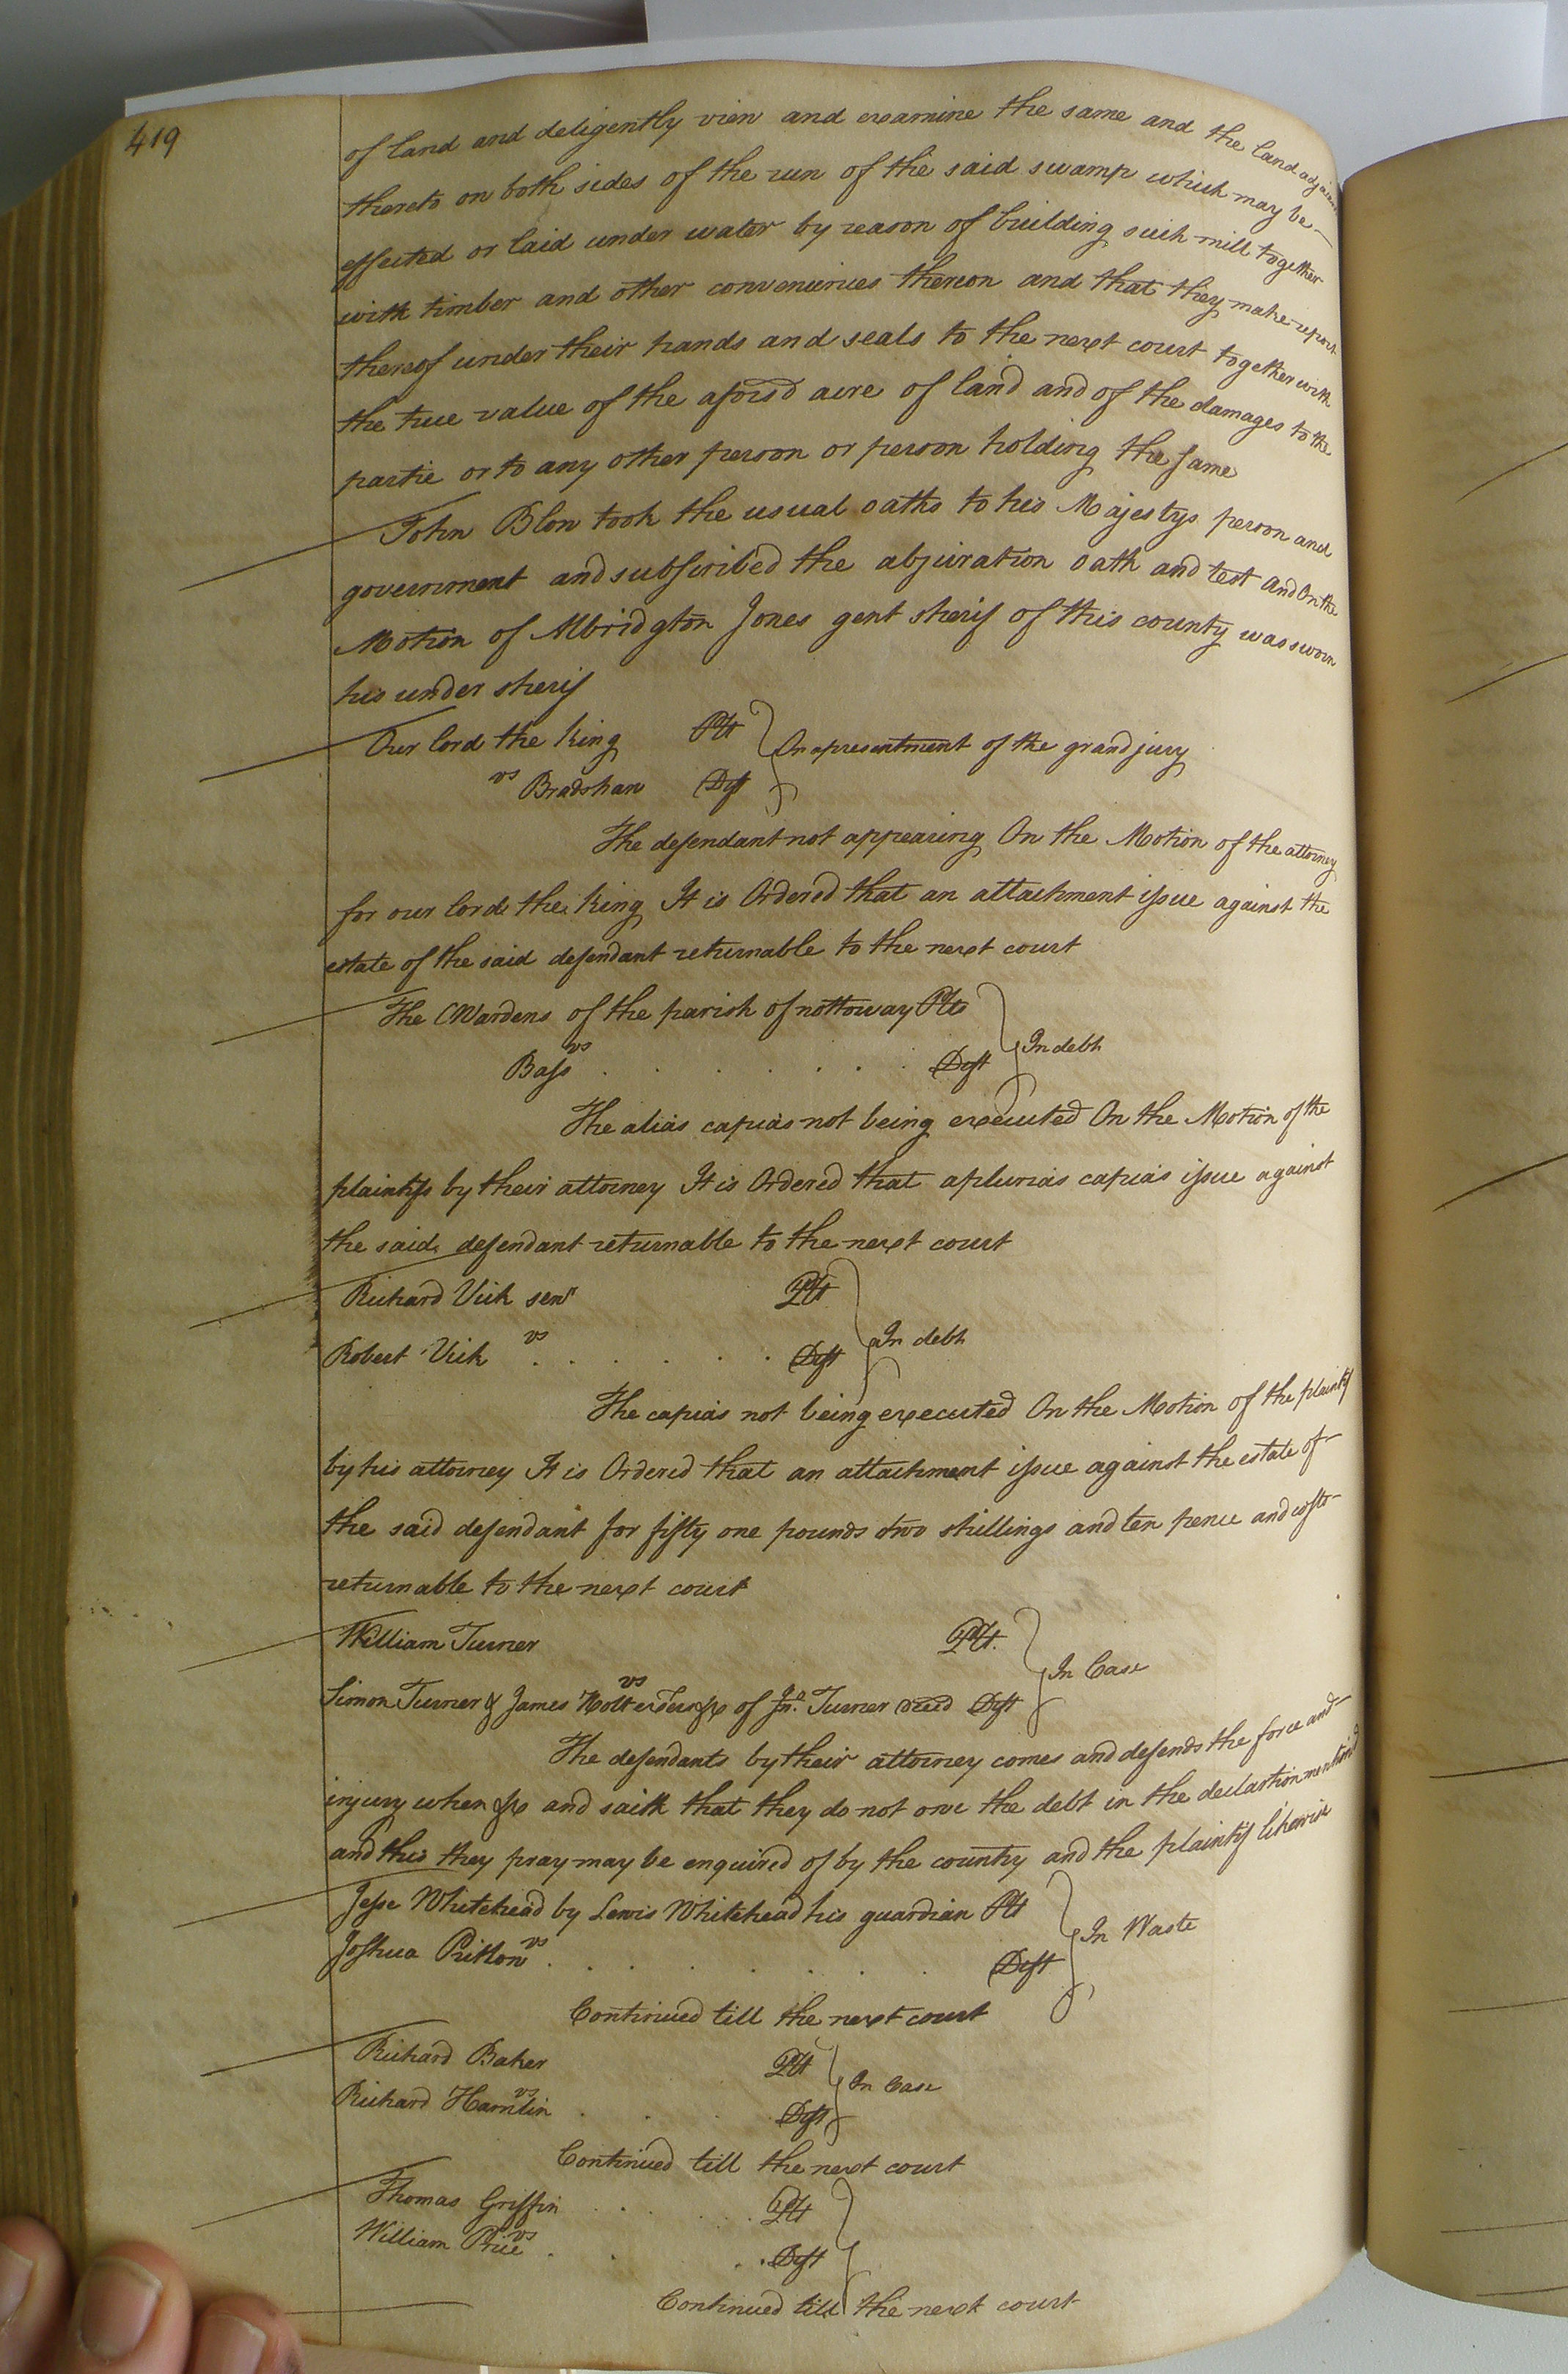 419
of land and deligently view and examine the same and the land adjacent
thereto on both sides of the run of the said swamp which may be
effected or laid under water by reason of building such mill together
with timber and other conveniences thereon and that they make report
thereof under their hands and seals to the next court together with
the true value of the aforsd acre of land and of the damages to the
partie or to any other person or person holding the same
John Blow took the usual oaths to his Majestys person and
government and subscribed the abjuration oath and test and On the
Motion of Albridgton Jones gent sherif of this county was sworn
his under sherif
Our lord the King Plt
vs On a presentment of the grand jury
Bradshaw Deft
The defendant not appearing On the Motion of the attorney
for our lord the King It is Ordered that an attachment issue against the
estate of the said defendant returnable to the next court
The CWardens of the parish of nottoway Plts
vs In debt
Bass Deft
The alias capias not being executed On the Motion of the
plaintifs by their attorney It is Ordered that a plurias capias issue against
the said defendant returnable to the next court
Richard Vick senr Plt
vs In debt
Robert Vick Deft
The capias not being executed On the Motion of the plaintif
by his attorney It is Ordered that an attachment issue against the estate of
the said defendant for fifty one pounds two shillings and ten pence and costs
returnable to the next court
William Turner Plt.
vs In Case
Simon Turner & James Holt &c of Jno. Turner deced Deft
The defendants by their attorney comes and defends the force and
injury when &c and saith that they do not owe the debt in the declartion mentioned
and this they pray may be enquired of by the country and the plaintif likewise
Jesse Whitehead by Lewis Whitehead his guardian Plt
vs In Waste
Joshua Deft
Continued till the next court
Richard Baker Plt
vs In Case
Richard Hamlin Deft
Continued till the next court
Thomas Griffin Plt
vs
William Price Deft
Continued till the next court